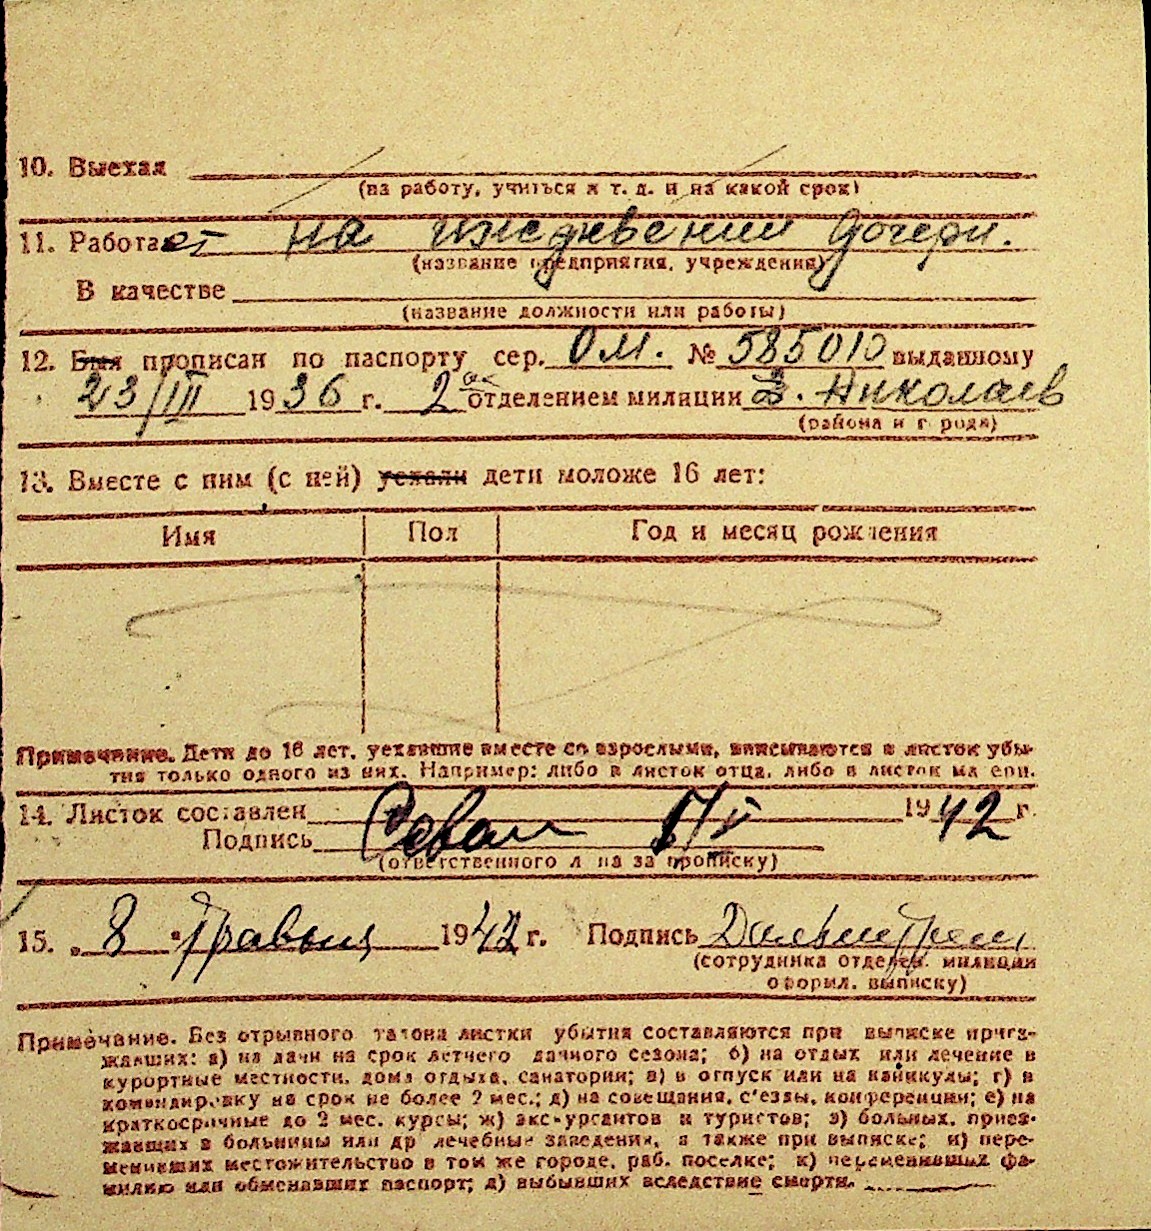 10. Выехал
(на работу, учиться и т. д. и на какой срок)
11. Работает на иждевении дочери.
(название предприятия, учреждения)
В качестве
(название должности или работы)
12. Был прописан по паспорту сер. ОМ. № 585010 выданному
23/III 1936 г. 2ое отделением милиции г. Николаев
(района и города)
13. Вместе с ним (с ней) уехали дети моложе 16 лет:
Имя Пол Год и месяц рождения
Примечание. Дети до 16 лет, уехавшие вместе со взрослыми, вписываются в листок убы-
тия только одного из них. Например: либо в листок отца, либо в листок матери.
14. Листок составлен 8/V 1942 г.
Подпись
(ответственного лица за прописку)
15. „8" Травня 1942 г. Подпись
(сотрудника отделен. милиции
оформл. выписку)
Примечание. Без отрывного талона листки убытия составляются при выписке приез-
жавших: а) на дачи на срок летнего дачного сезона; б) на отдых или лечение в
курортные местности, дома отдыха, санатории; в) в отпуск или на каникулы; г) в
командировку на срок не более 2 мес.; д) на совещания, с'езды, конференции; е) на
краткосрочные до 2 мес. курсы; ж) экскурсантов и туристов; з) больных, приез-
жавших в больницы или др лечебные заведения, а также при выписке; и) пере-
менивших местожительство в том же городе, раб. поселке; к) переменивших фа-
милию или обменявших паспорт; л) выбывших вследствие смерти.